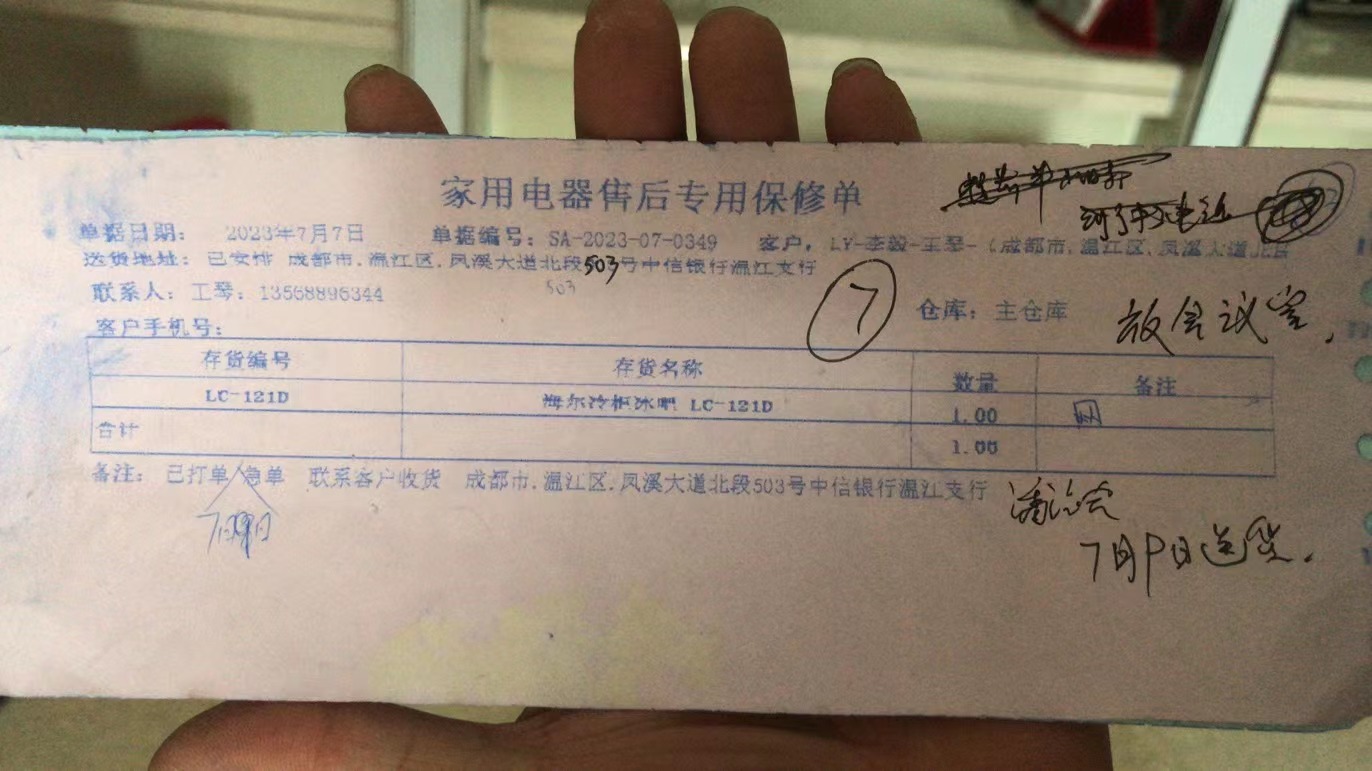 家用电器售后专用保修单
单据日期： 2023年7月7日 单据编号：SA-2023-07-0349 客户：LY-李毅-王琴-（成都市.温江区.凤溪大道北段
送货地址：已安排 成都市.温江区.凤溪大道北段503号中信银行温江支行
503
联系人：王琴：13568896344
⑦
仓库：主仓库
放会议室，
客户手机号：
存货编号 存货名称 数量 备注
LC-121D 海尔冷柜冰吧 LC-121D 1.00 网
合计 1.00
备注： 已打单 急单 联系客户收货 成都市.温江区.凤溪大道北段503号中信银行温江支行
7月9日
7月9日送货.